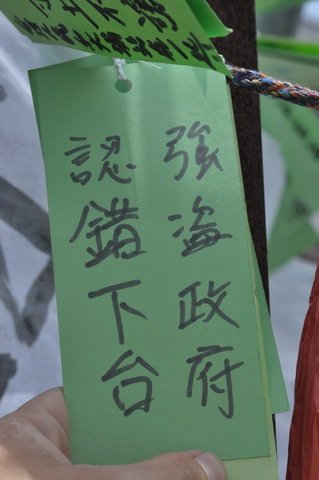 強盗政府
認錯下台